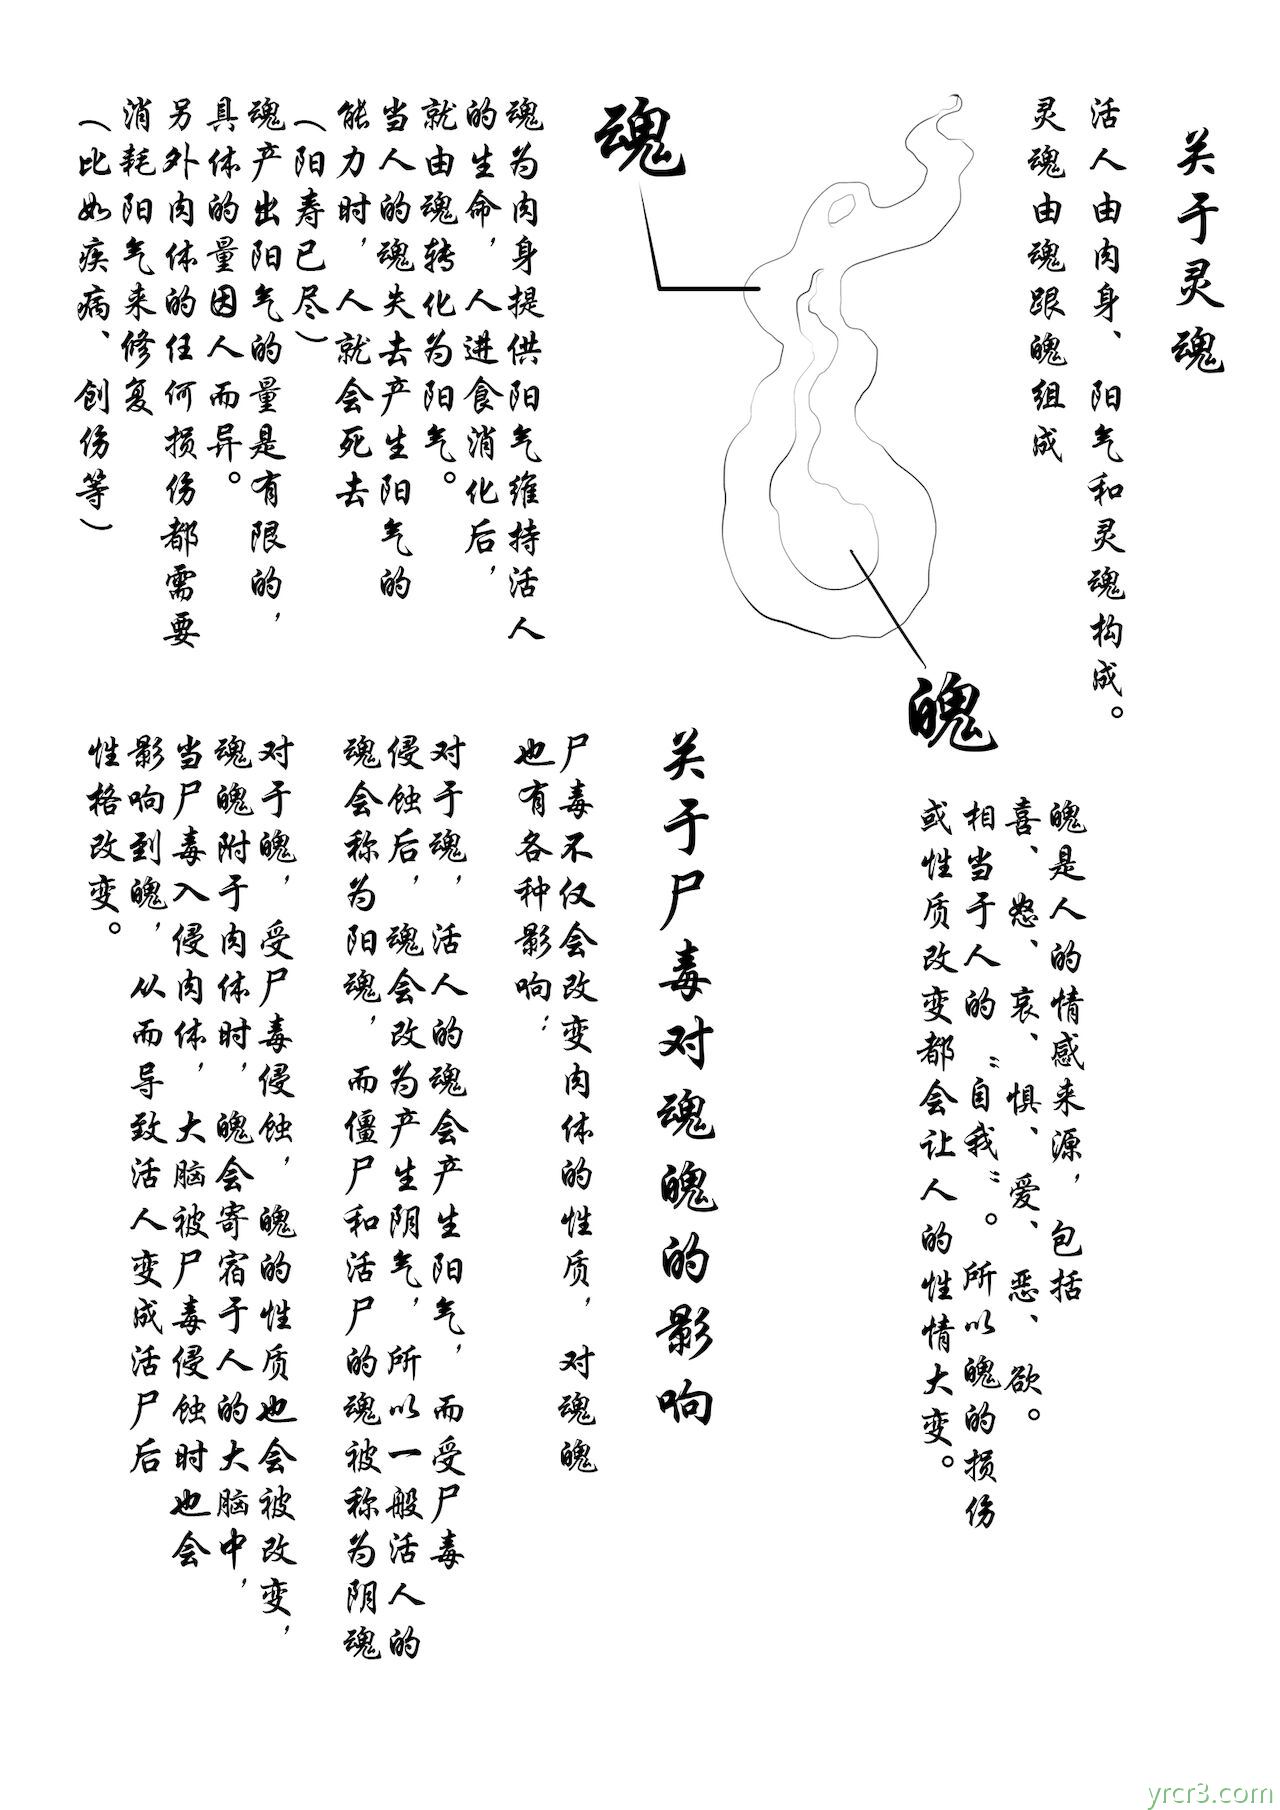 关于灵魂
活人由肉身、阳气和灵魂构成。
灵魂由魂跟魄组成
魂
魂为肉身提供阳气维持活人
的生命，人进食消化后，
就由魂转化为阳气。
当人的魂失去产生阳气的
能力时，人就会死去
（阳寿已尽）
魂产出阳气的量是有限的，
具体的量因人而异。
另外肉体的任何损伤都需要
消耗阳气来修复
（比如疾病、创伤等）
魄
魄是人的情感来源，包括
喜、怒、哀、惧、爱、恶、欲。
相当于人的“自我”。所以魄的损伤
或性质改变都会让人的性情大变。
关于尸毒对魂魄的影响
尸毒不仅会改变肉体的性质，对魂魄
也有各种影响：
对于魂，活人的魂会产生阳气，而受尸毒
侵蚀后，魂会改为产生阴气，所以一般活人的
魂会称为阳魂，而僵尸和活尸的魂被称为阴魂
对于魄，受尸毒侵蚀，魄的性质也会被改变，
魂魄附于肉体时，魄会寄宿于人的大脑中，
当尸毒入侵肉体，大脑被尸毒侵蚀时也会
影响到魄，从而导致活人变成活尸后
性格改变。
yrcr3.com